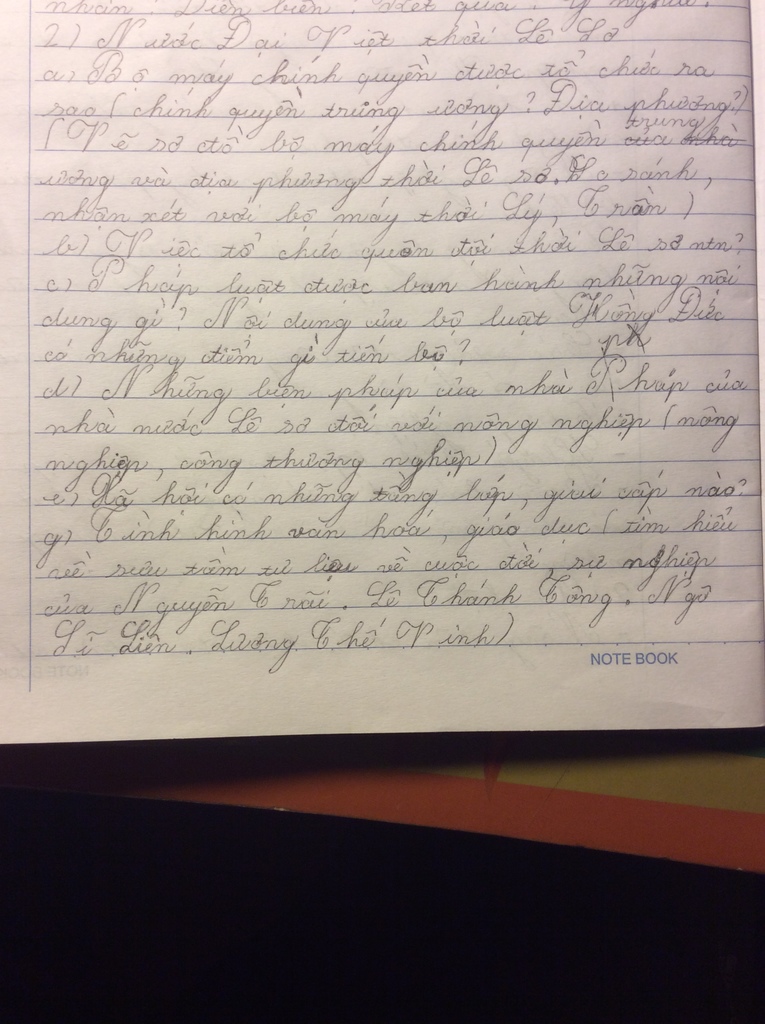 nhân. Diễn biến. Kết quả. Ý nghĩa.
2) Nước Đại Việt thời Lê Sơ
a) Bộ máy chính quyền được tổ chức ra
sao (chính quyền trung ương? Địa phương?)
(Vẽ sơ đồ bộ máy chính quyền của nhà trung
ương và địa phương thời Lê sơ. So sánh,
nhận xét với bộ máy thời Lý, Trần)
b) Việc tổ chức quân đội thời Lê sơ ntn?
c) Pháp luật được ban hành những nội
dung gì? Nội dung của bộ luật Hồng Đức
có những điểm gì tiến bộ?
ph
d) Những biện pháp của nhà Pháp của
nhà nước Lê sơ đối với nông nghiệp (nông
nghiệp, công thương nghiệp)
e) Xã hội có những tầng lớp, giai cấp nào?
g) Tình hình văn hoá, giáo dục (tìm hiểu
về sưu tầm tư liệu về cuộc đời, sự nghiệp
của Nguyễn Trãi. Lê Thánh Tông. Ngô
Sĩ Liên. Lương Thế Vinh)
NOTE BOOK